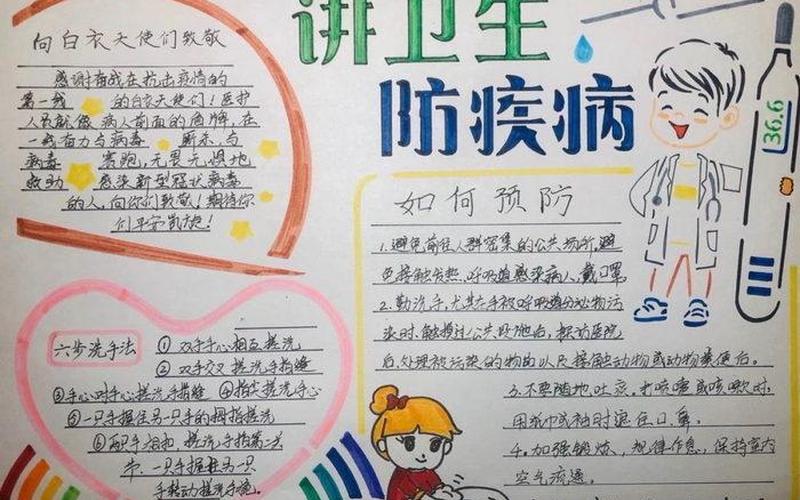 讲卫生
防疾病
向白衣天使们致敬
感谢奋战在抗击疫情的
第一线 的白衣天使们！医护
人员就像病人前面的盾牌，在
一线奋力与病毒 厮杀，与
病毒 赛跑，无畏无惧地
救助 感染新型冠状病毒
的人，向你们致敬！期待你
们平安凯旋！
36.6
如何预防
1.避免前往人群密集的公共场所，避
免接触发热、呼吸道感染病人，戴口罩
2.勤洗手，尤其在手被呼吸道分泌物污
染时、触摸过公共设施后、探访医院
后，处理被污染的物品以及接触动物或动物粪便后。
3.不要随地吐痰，打喷嚏或咳嗽时，
用纸巾或袖时遮住口、鼻。
4.加强锻炼，规律作息，保持室内
空气流通。
六步洗手法
① 双手手心相互搓洗
② 双手交叉搓洗手指缝
③手心对手心搓洗手指缝 ④指尖搓洗手心
⑤一只手握住另一只手的拇指搓洗
⑥两手相扣，搓洗手指
一只手握住另一只
手转动搓洗手腕。